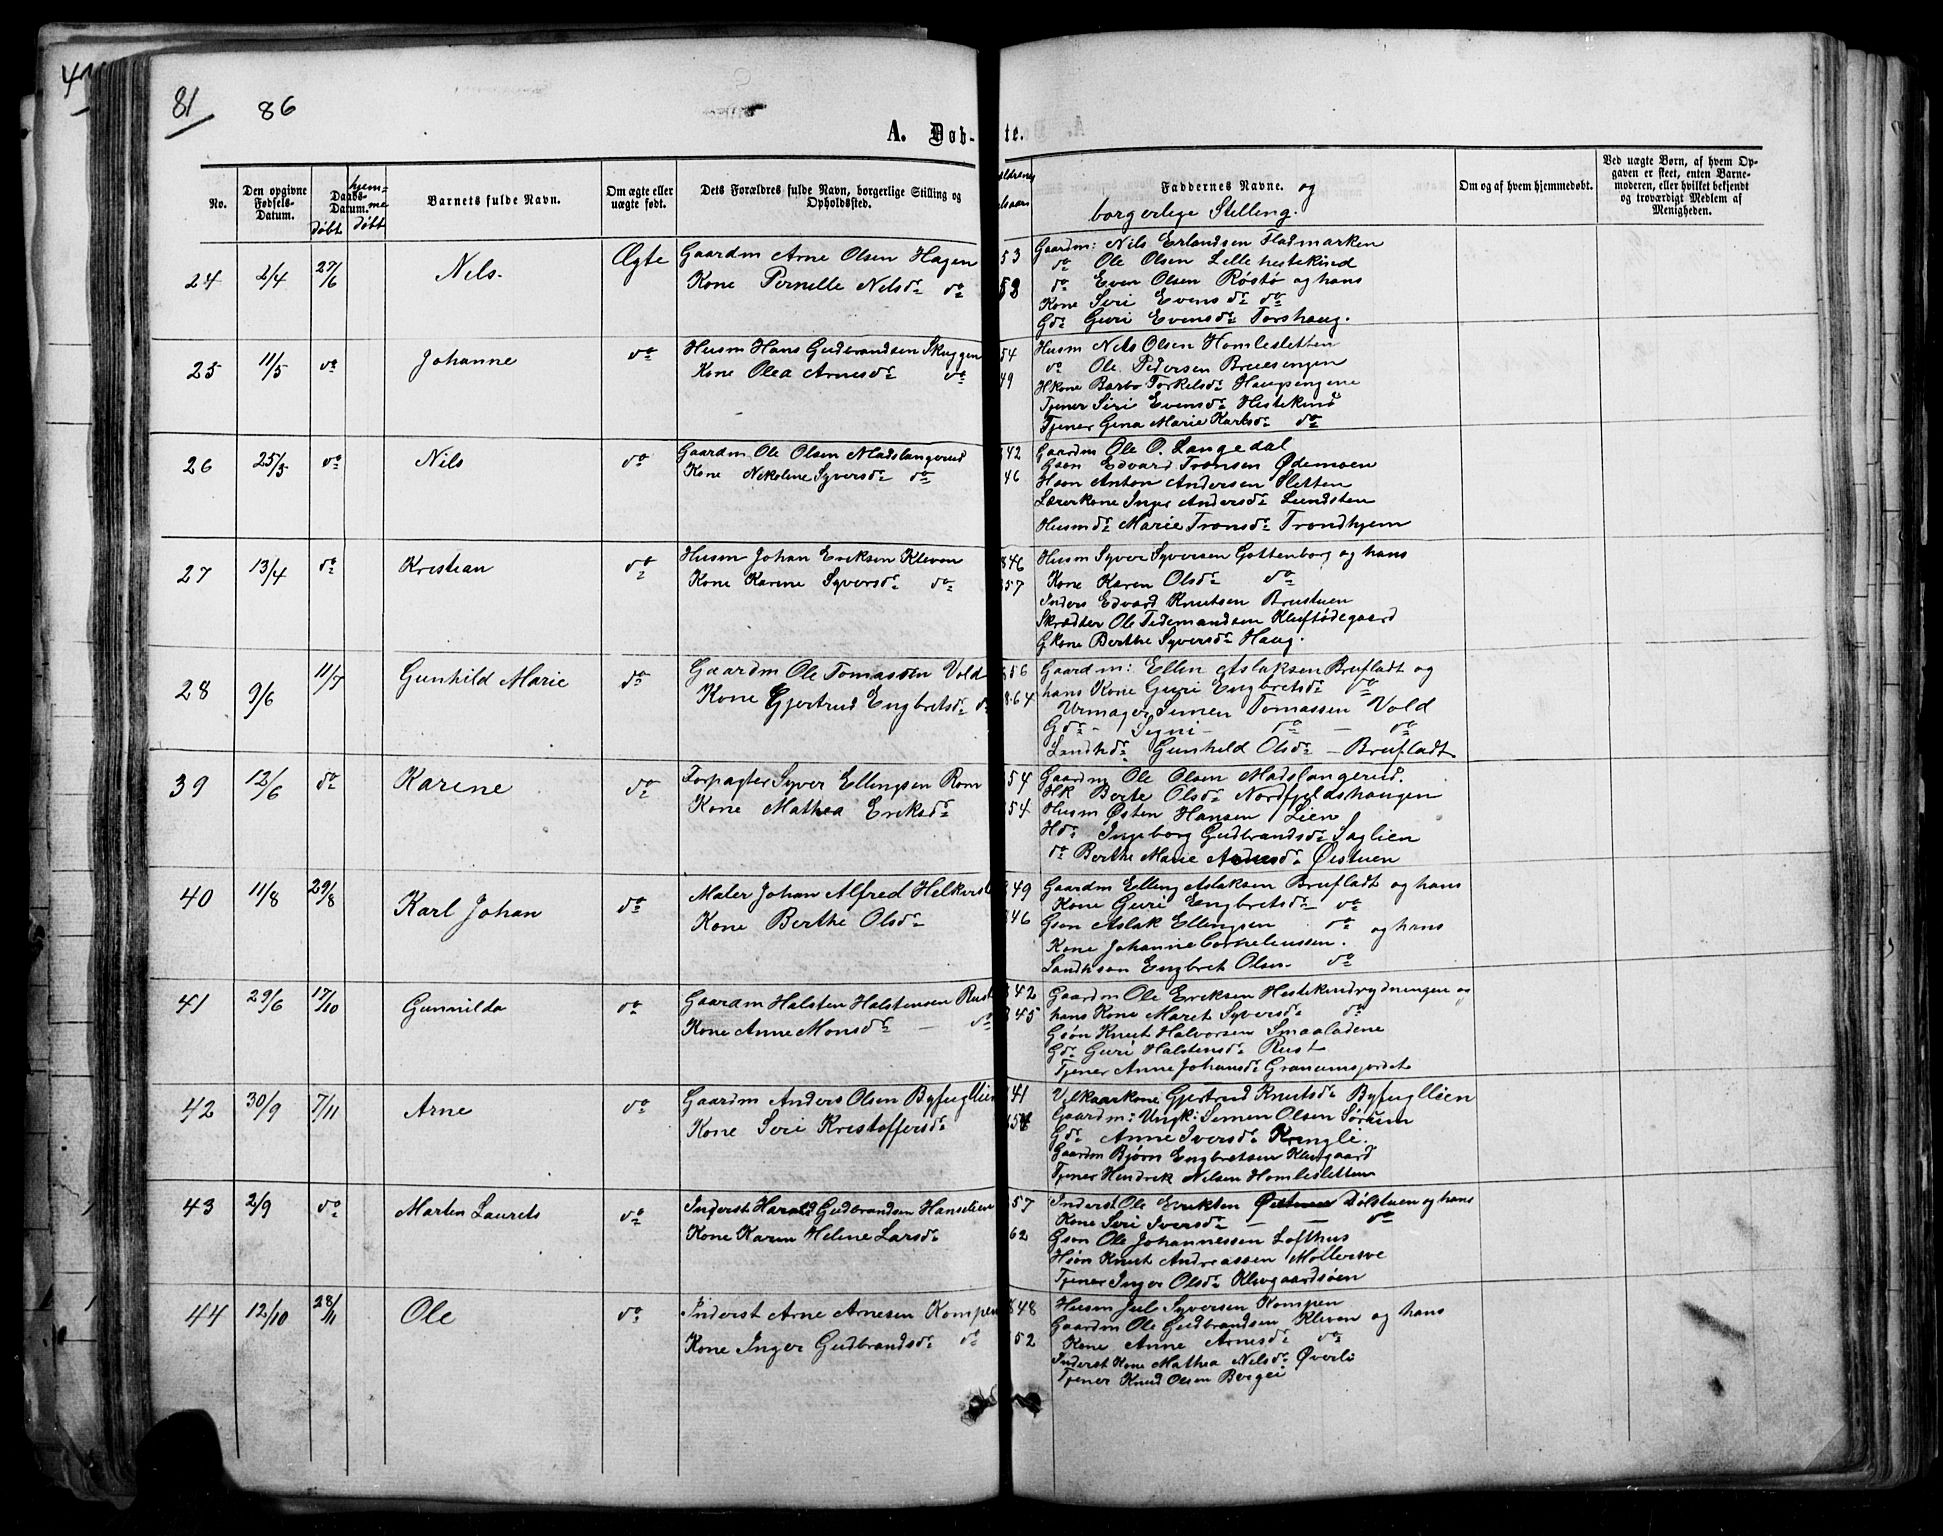 81 86
A. Døb-te.
No.
Den opgivne Fødsels-Datum.
Daabs-Datum. døbt
hjem-me døbt
Barnets fulde Navn.
Om ægte eller uægte født.
Dets Forældres fulde Navn, borgerlige Stilling og Opholdssted.
Faddernes Navne. og
borgerlige Stilling.
Om og af hvem hjemmedøbt.
Ved uægte Børn, af hvem Op-
gaven er skeet, enten Barne-
moderen, eller hvilket bekjendt
og troværdigt Medlem af
Menigheden.
24 2/4 27/6 Nels- Ægte Gaardm Arne Olsen Hagen 53
Kone Pernille Nelsdr do 58
Gaardm: Nils Erlandsen Fladmarken
do Ole Olsen Lelle hestekind
do Even Olsen Røstø og hans
Kone Siri Evensdr do
Gdr Guri Evensdr Torshaug.
25 11/5 do Johanne do Husm Hans Gudbrandsen Skuggen 54
Kone Olea Arnesdr do 49
Husm Nels Olsen Homlesletten
do Ole Pedersen Bruesengen
Hkone Barbo Torkelsdr Haugsengene
Tjener Siri Evensdr Hestekind
Tjener Gina Marie Karlsdr do
26 25/5 do Nils do Gaardm Ole Olsen Madslangerud 42
Kone Nekoline Syversdr do 46
Gaardm Ole O. Langedal
Gson Edvard Tronsen Ødemoen
Hson Anton Andersen Sletten
Lærerkone Inger Andersdr Lundsten
Husmdr Marie Tronsdr Trondhjem
27 13/4 do Kristian do Husm Johan Eriksen Kleven 846
Kone Karine Syversdr do 57
Husm Syver Syversen Gottenborg og hans
Kone Karen Olsdr do
Inders Edvard Knutsen Brustuen
Skrædter Ole Tidemandsen Kluftødegaard
Gkone Berthe Syversdr Haug.
28 9/6 11/7 Gunhild Marie do Gaardm Ole Tomassen Vold 56
Kone Gjertrud Engbretsdr do 64
Gaardm: Ellin Aslaksen Brufladt og
hans Kone Guri Engbretsdr do
Urmager Simen Tomassen Vold
Gdr - Signi - do - do
Gunhild Olsdr - Brufladt
39 12/6 do Karine do Forpagter Syver Ellingsen Rom 54
Kone Mathea Eriksdr 54
Gaardm Ole Olsen Madslangerud.
HK Berte Olsdr Nordfjeldshaugen
Husm Østen Hansen Lien
Hdr Ingeborg Gudbrandsdr Saglien
do Berthe Marie Andersdr Østuen
40 11/8 29/8 Karl Johan do Maler Johan Alfred 49
Kone Berthe Olsdr 46
Gaardm Elling Aslaksen Brufladt og hans
Kone Guri Engbretsdr do
Gson Aslak Ellingsen do og hans
Kone Johanne Corneliussen.
Sandhson Engbret Olsen do
41 29/6 17/10 Gunnilda do Gaardm Halsten Halstensen Rust 42
Kone Anne Monsdr - do 45
Gaardm Ole Eriksen Hestekindrydningen og
hans Kone Maret Syversdr do
Gsøn Knut Halvorsen Smaaladene
Gdr Guri Halstensdr Rust
Tjener Anne Johansdr Granumsjordet
42 30/9 7/11 Arne do Gaardm Anders Olsen Byfuglien 41
Kone Siri Kristoffersdr
Velkaarkone Gjertrud Knutsdr Byfuglien
Gaardm: Ungk: Simen Olsen Sørum
Gdr Anne Iversdr Kringli.
Gaardm Bjørn Engbretsen Klevgaard
Tjener Hendrek Nelsen Homlesletten
43 2/9 do Marten Laurets do Inderst Harald Gudbrandsen Hanselien 57
Kone Karen Helene Larsdr 62
Inderst Ole Eriksen Dølstuen og hans
Kone Siri Iversdr - - do
Gson Ole Johannessen Lofthus
Hsøn Knut Andreassen Møllersve
Tjener Inger Olsdr Klevgaardsøen
44 12/10 28/11 Ole do Inderst Arne Arnesen Kompen 848
Kone Inger Gudbrandsdr do 52
Husm Jul Syversen Kompen
Gaardm Ole Gudbrandsen Kleven og hans
Kone Anne Arnesdr do
Inderst Kone Mathea Nelsdr Øverli
Tjener Knud Olsen Bergei